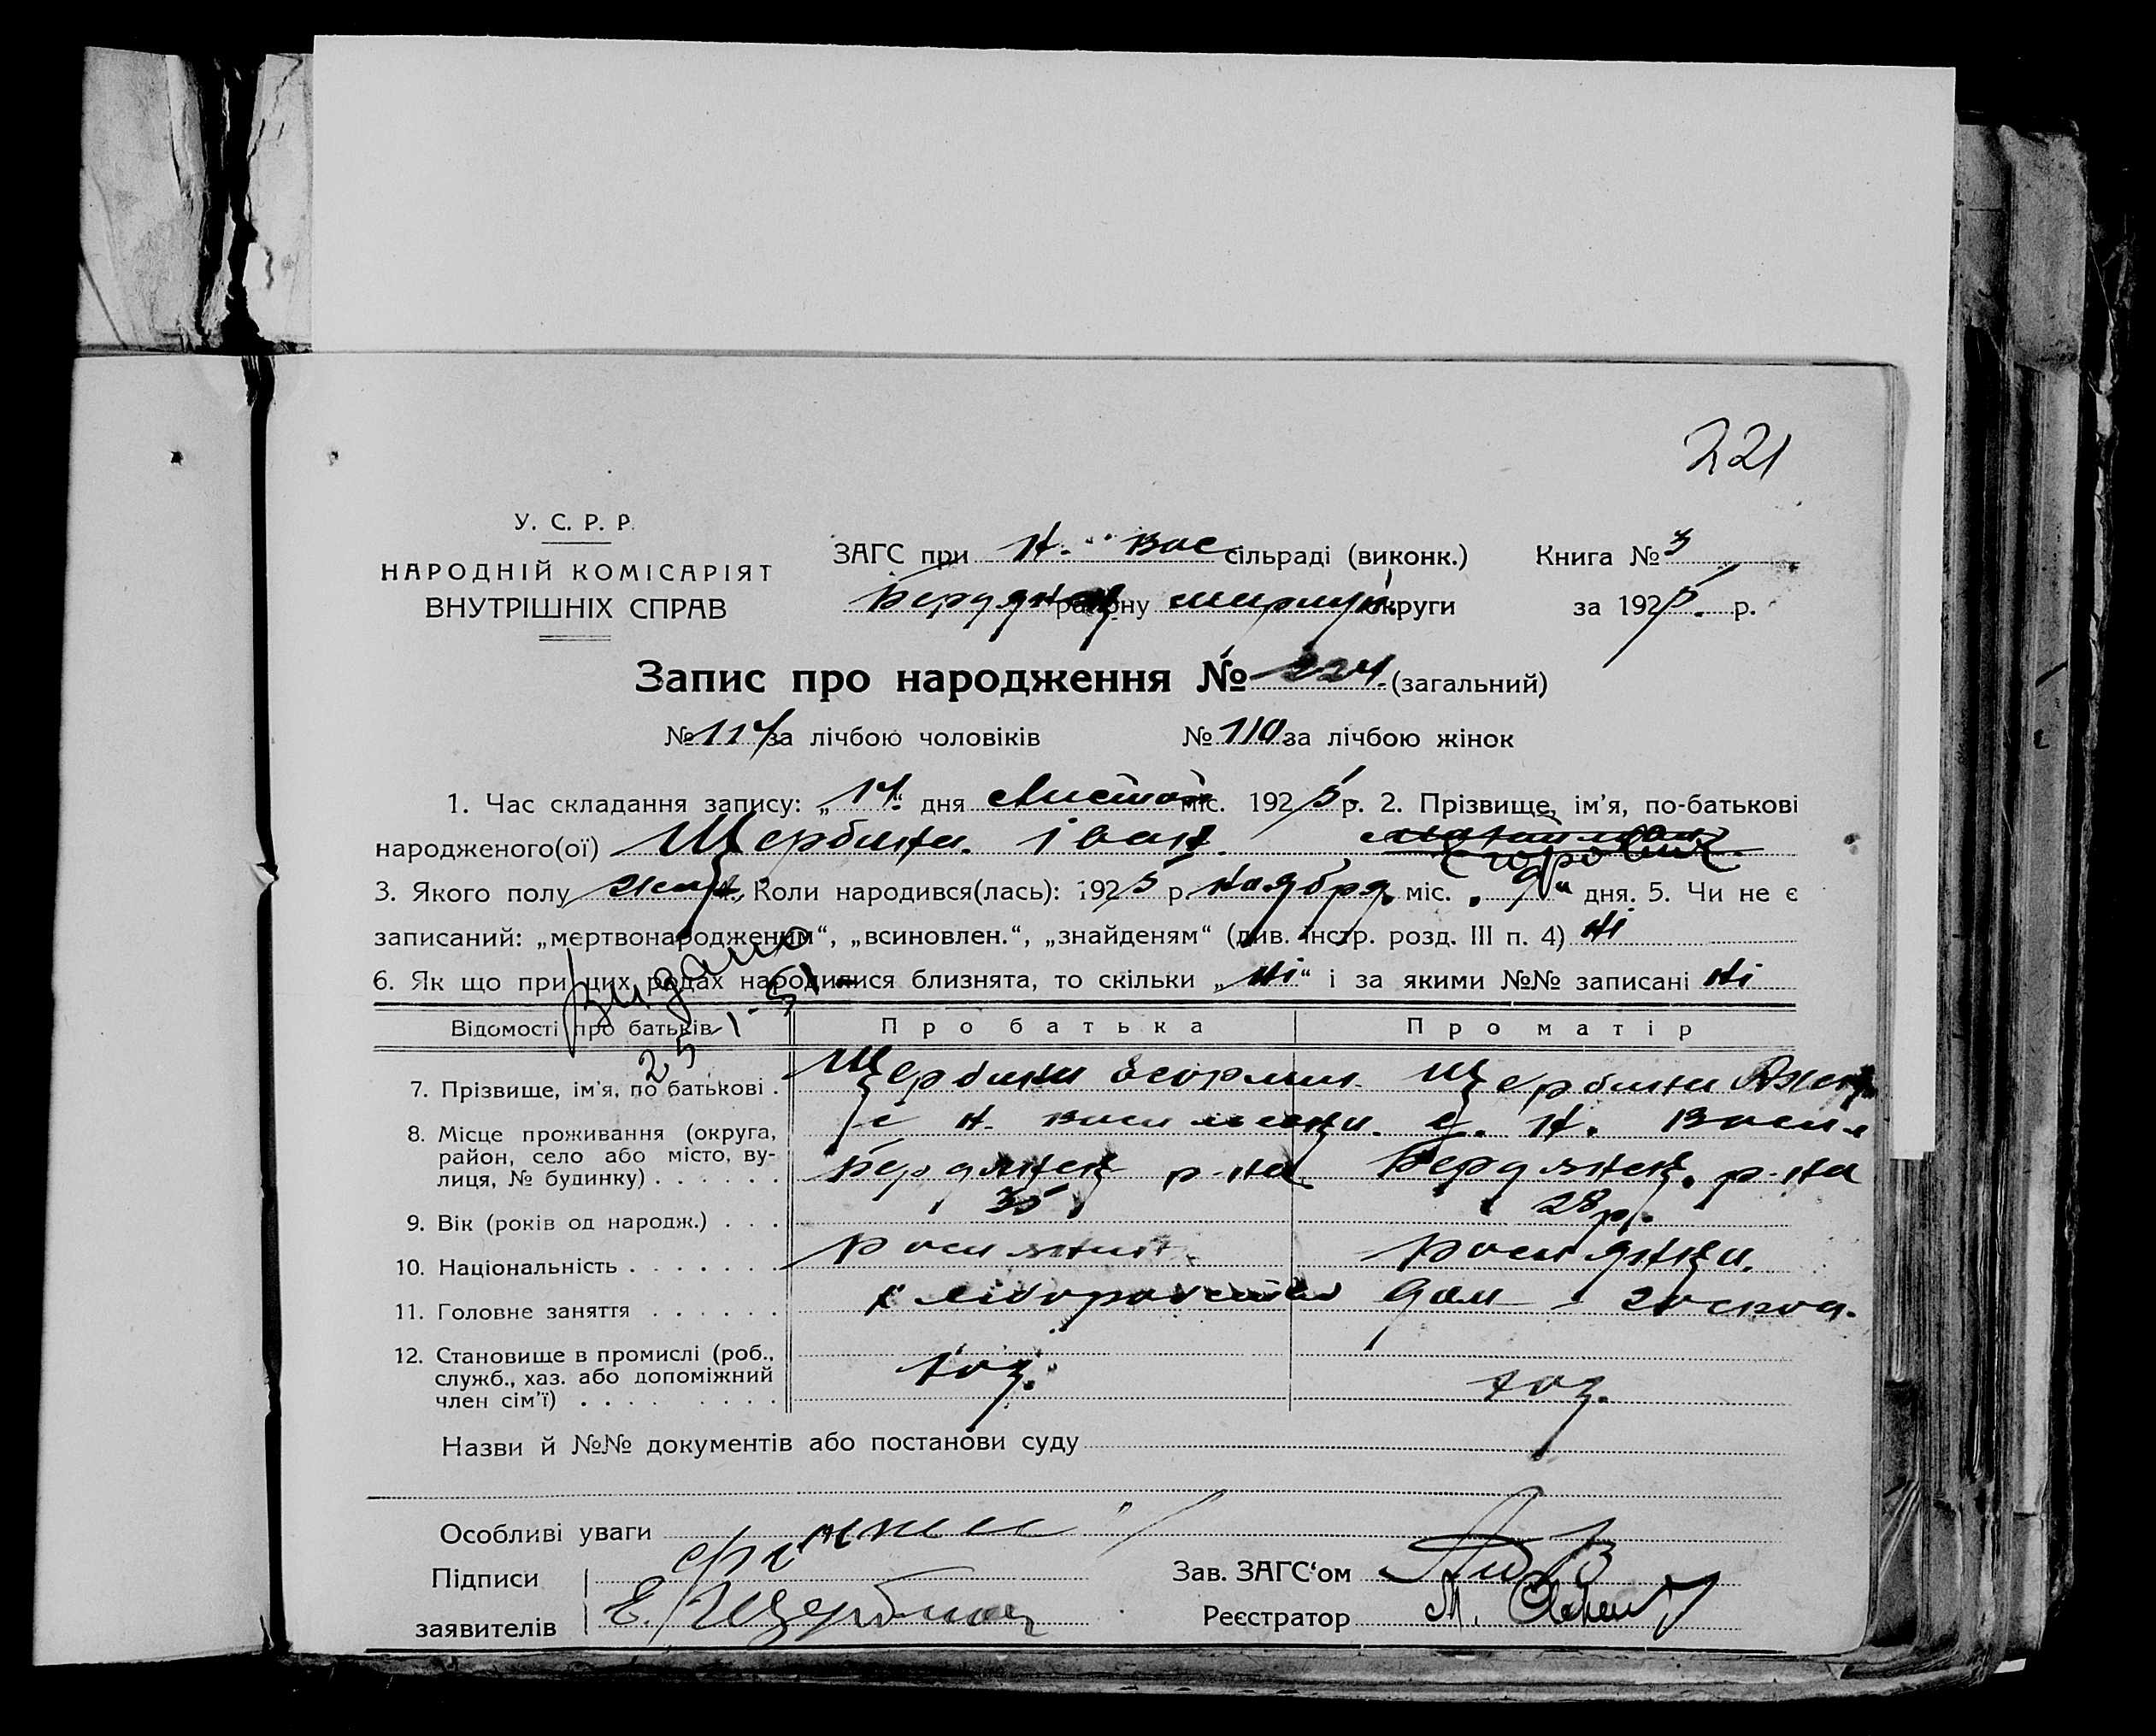 221
У. С. Р. Р.
НАРОДНІЙ КОМІСАРІЯТ
ВНУТРІШНІХ СПРАВ
ЗАГС при Н. Вас сільраді (виконк.) Книга № 3
Бердянс району округи за 1925 р.
Запис про народження № 224 (загальний)
№ 114 за лічбою чоловіків № 110 за лічбою жінок
1. Час складання запису: „14“ дня Листоп міс. 1925 р. 2. Прізвище, ім'я, по-батькові
народженого(ої) Щербина Іван
3. Якого полу 4. Коли народився(лась): 1925 р. Ноября міс. „9“ дня. 5. Чи не є
записаний: „мертвонародженим“, „всиновлен.“, „знайденям“ (див. інстр. розд. III п. 4) ні
6. Як що при цих родах народилися близнята, то скільки „ні“ і за якими №№ записані ні
Видано
25-1-51
Відомості про батьків Про батька Про матір
7. Прізвище, ім'я, по батькові . Щербина Щербина
8. Місце проживання (округа, с Н. Василевка. с. Н. Васил
район, село або місто, ву- Бердянск р-на Бердянск. р-на
лиця, № будинку) . . . . . .
9. Вік (років од народж.) . . . 35 28 р.
10. Національність . . . . . . . Росиянин Росиянка.
11. Головне заняття . . . . . . хлиборобство дом - господ.
12. Становище в промислі (роб., хоз. хоз.
служб., хаз. або допоміжний
член сім'ї) . . . . . . . .
Назви й №№ документів або постанови суду
Особливі уваги
Підписи
заявителів Е. Щербина
Зав. ЗАГС'ом
Реєстратор М.